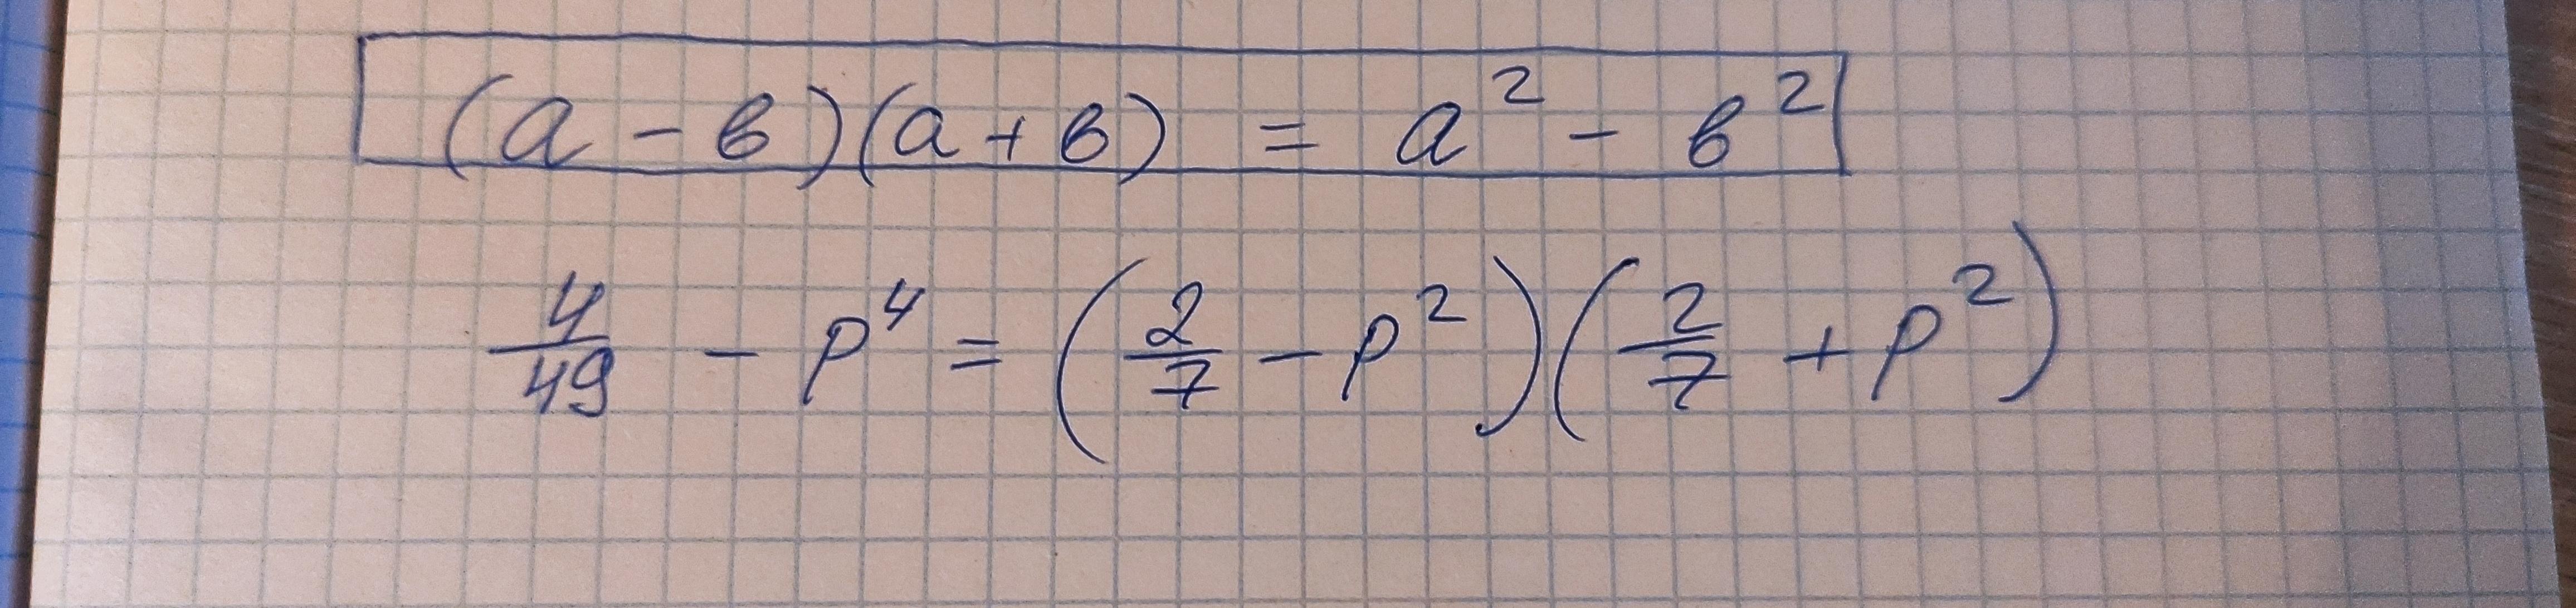 (a - b)(a + b) = a² - b²
4/49 - p⁴ = (2/7 - p²)(2/7 + p²)